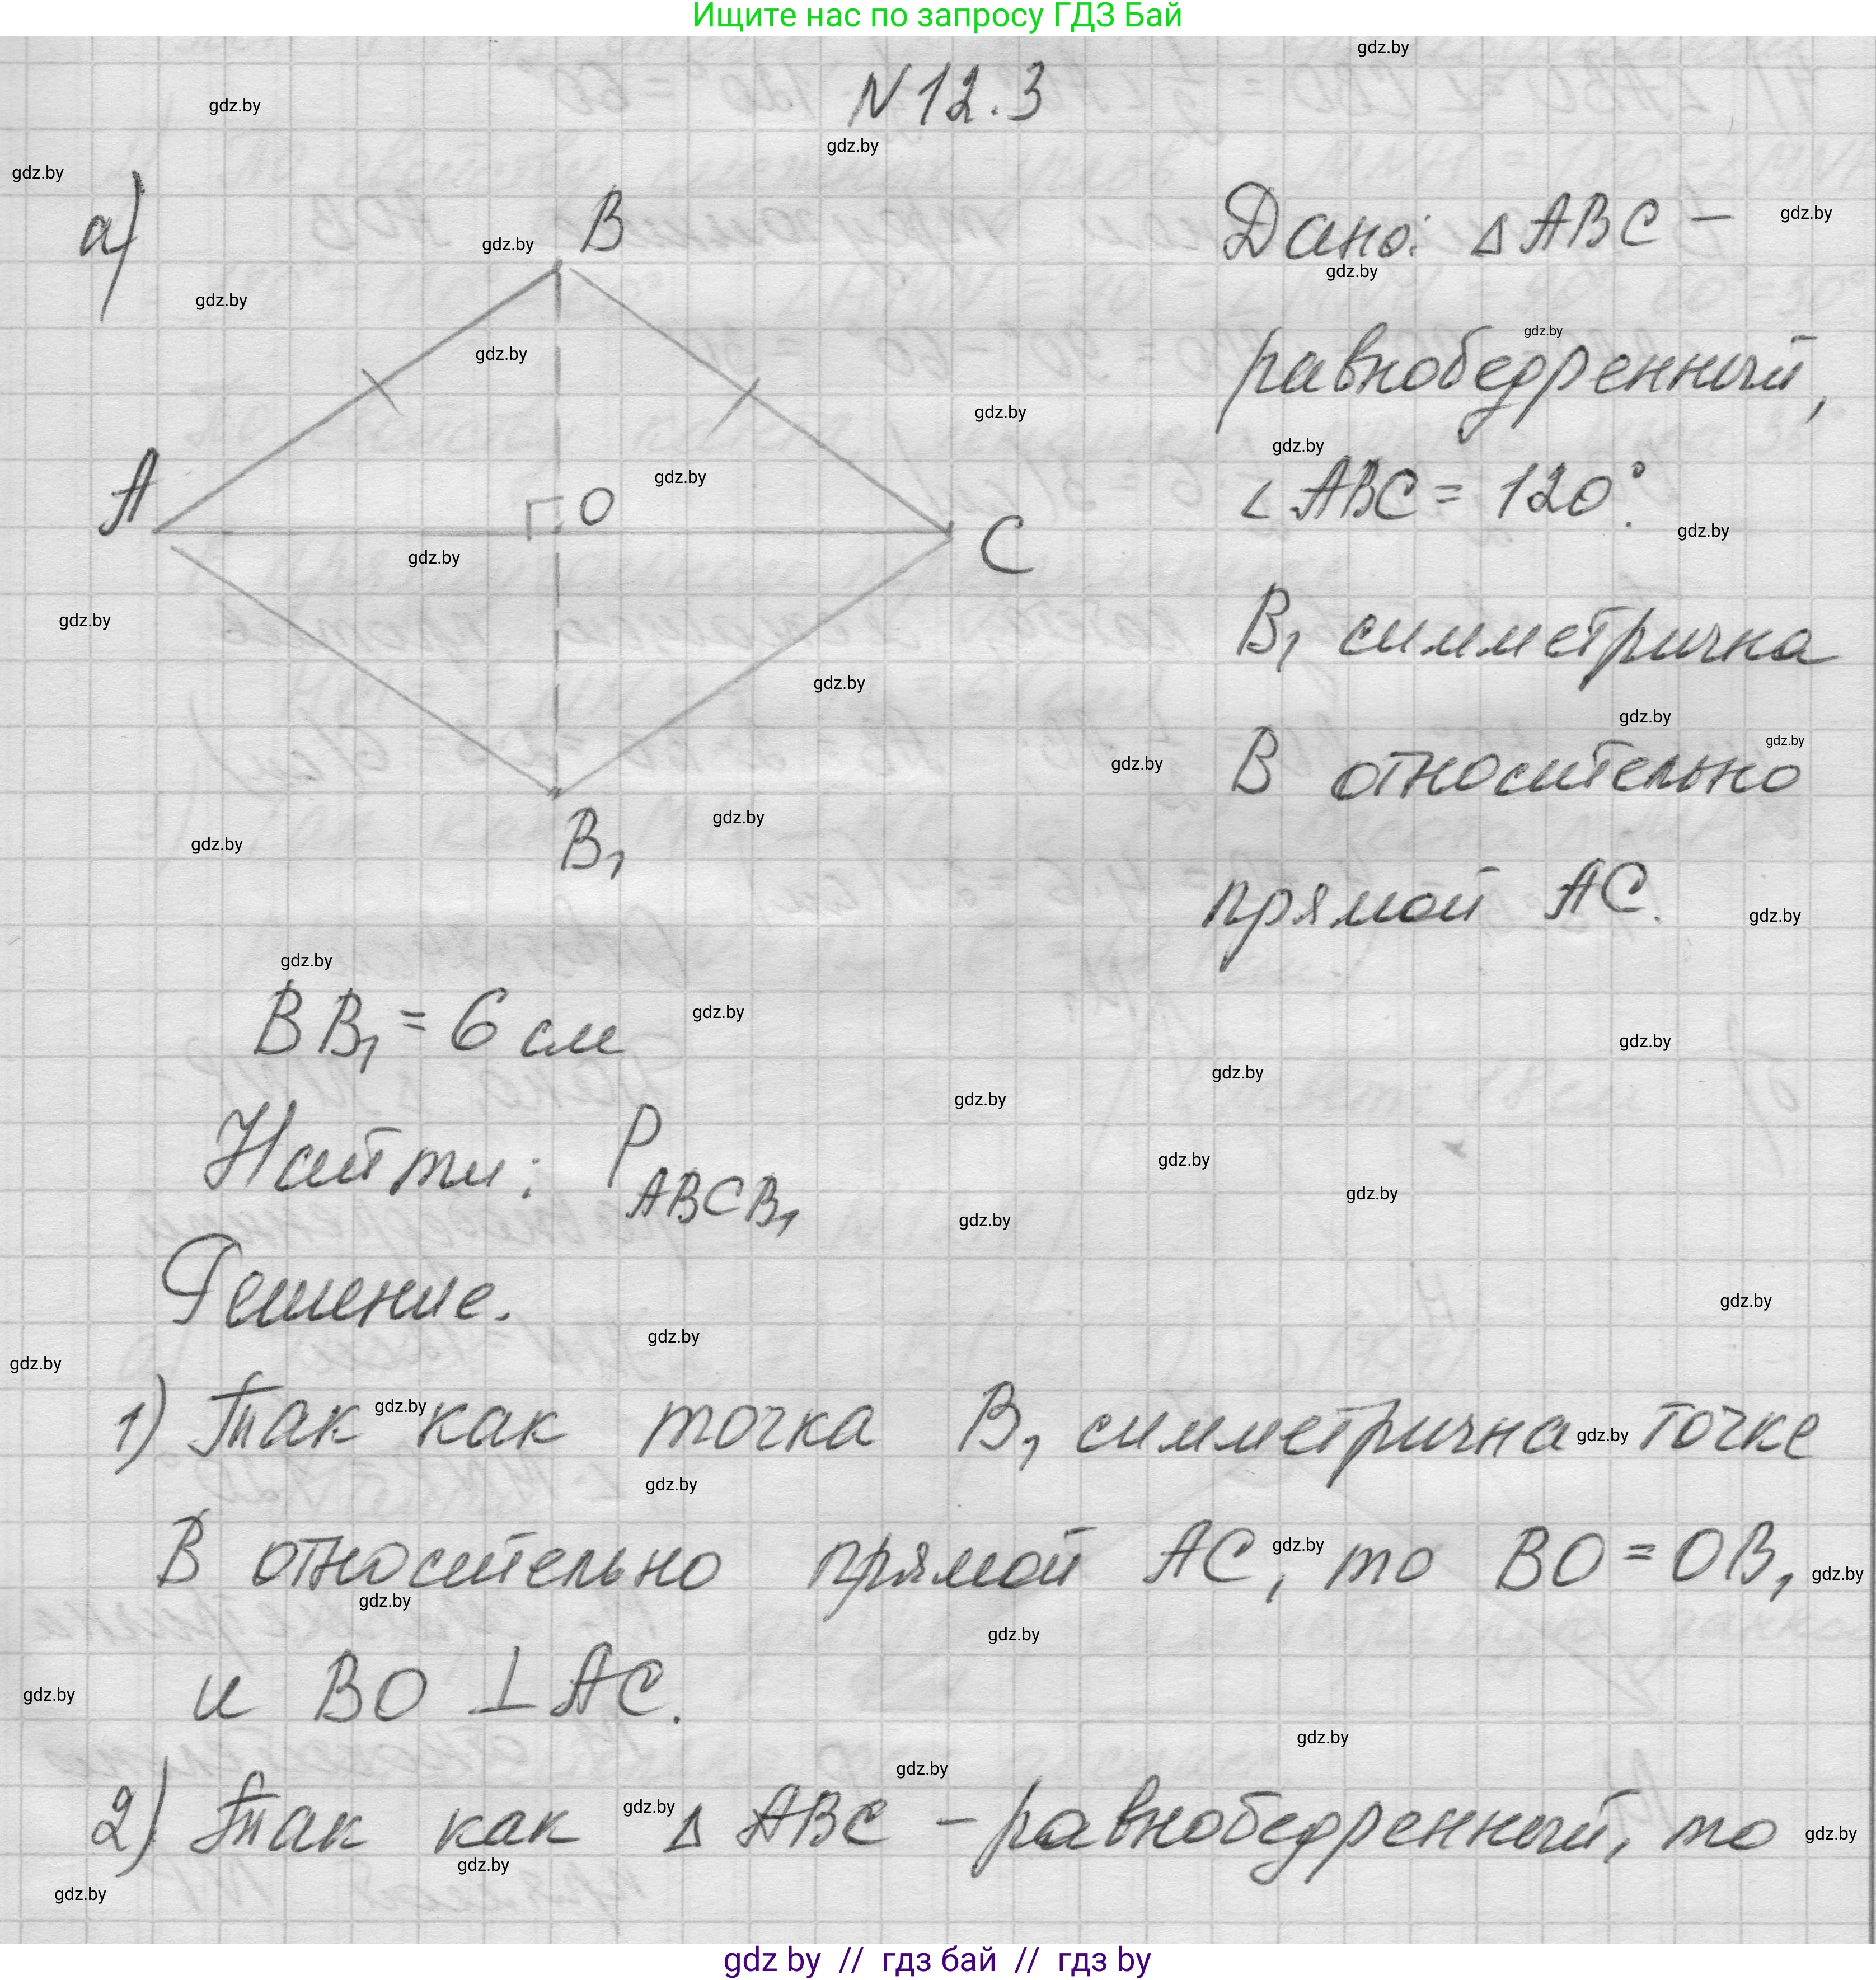 Ищите нас по запросу ГДЗ Бай
N 12.3
а)
B
A
O
C
B₁
Дано: △ABC –
равнобедренный,
∠ABC = 120°.
B₁ симметрична
B относительно
прямой AC.
BB₁ = 6 см
Найти: P_ABCB₁
Решение.
1) Так как точка B₁ симметрична точке
B относительно прямой AC, то BO = OB₁
и BO ⊥ AC.
2) Так как △ ABC – равнобедренный, то
gdz by // гдз бай // гдз by
gdz.by